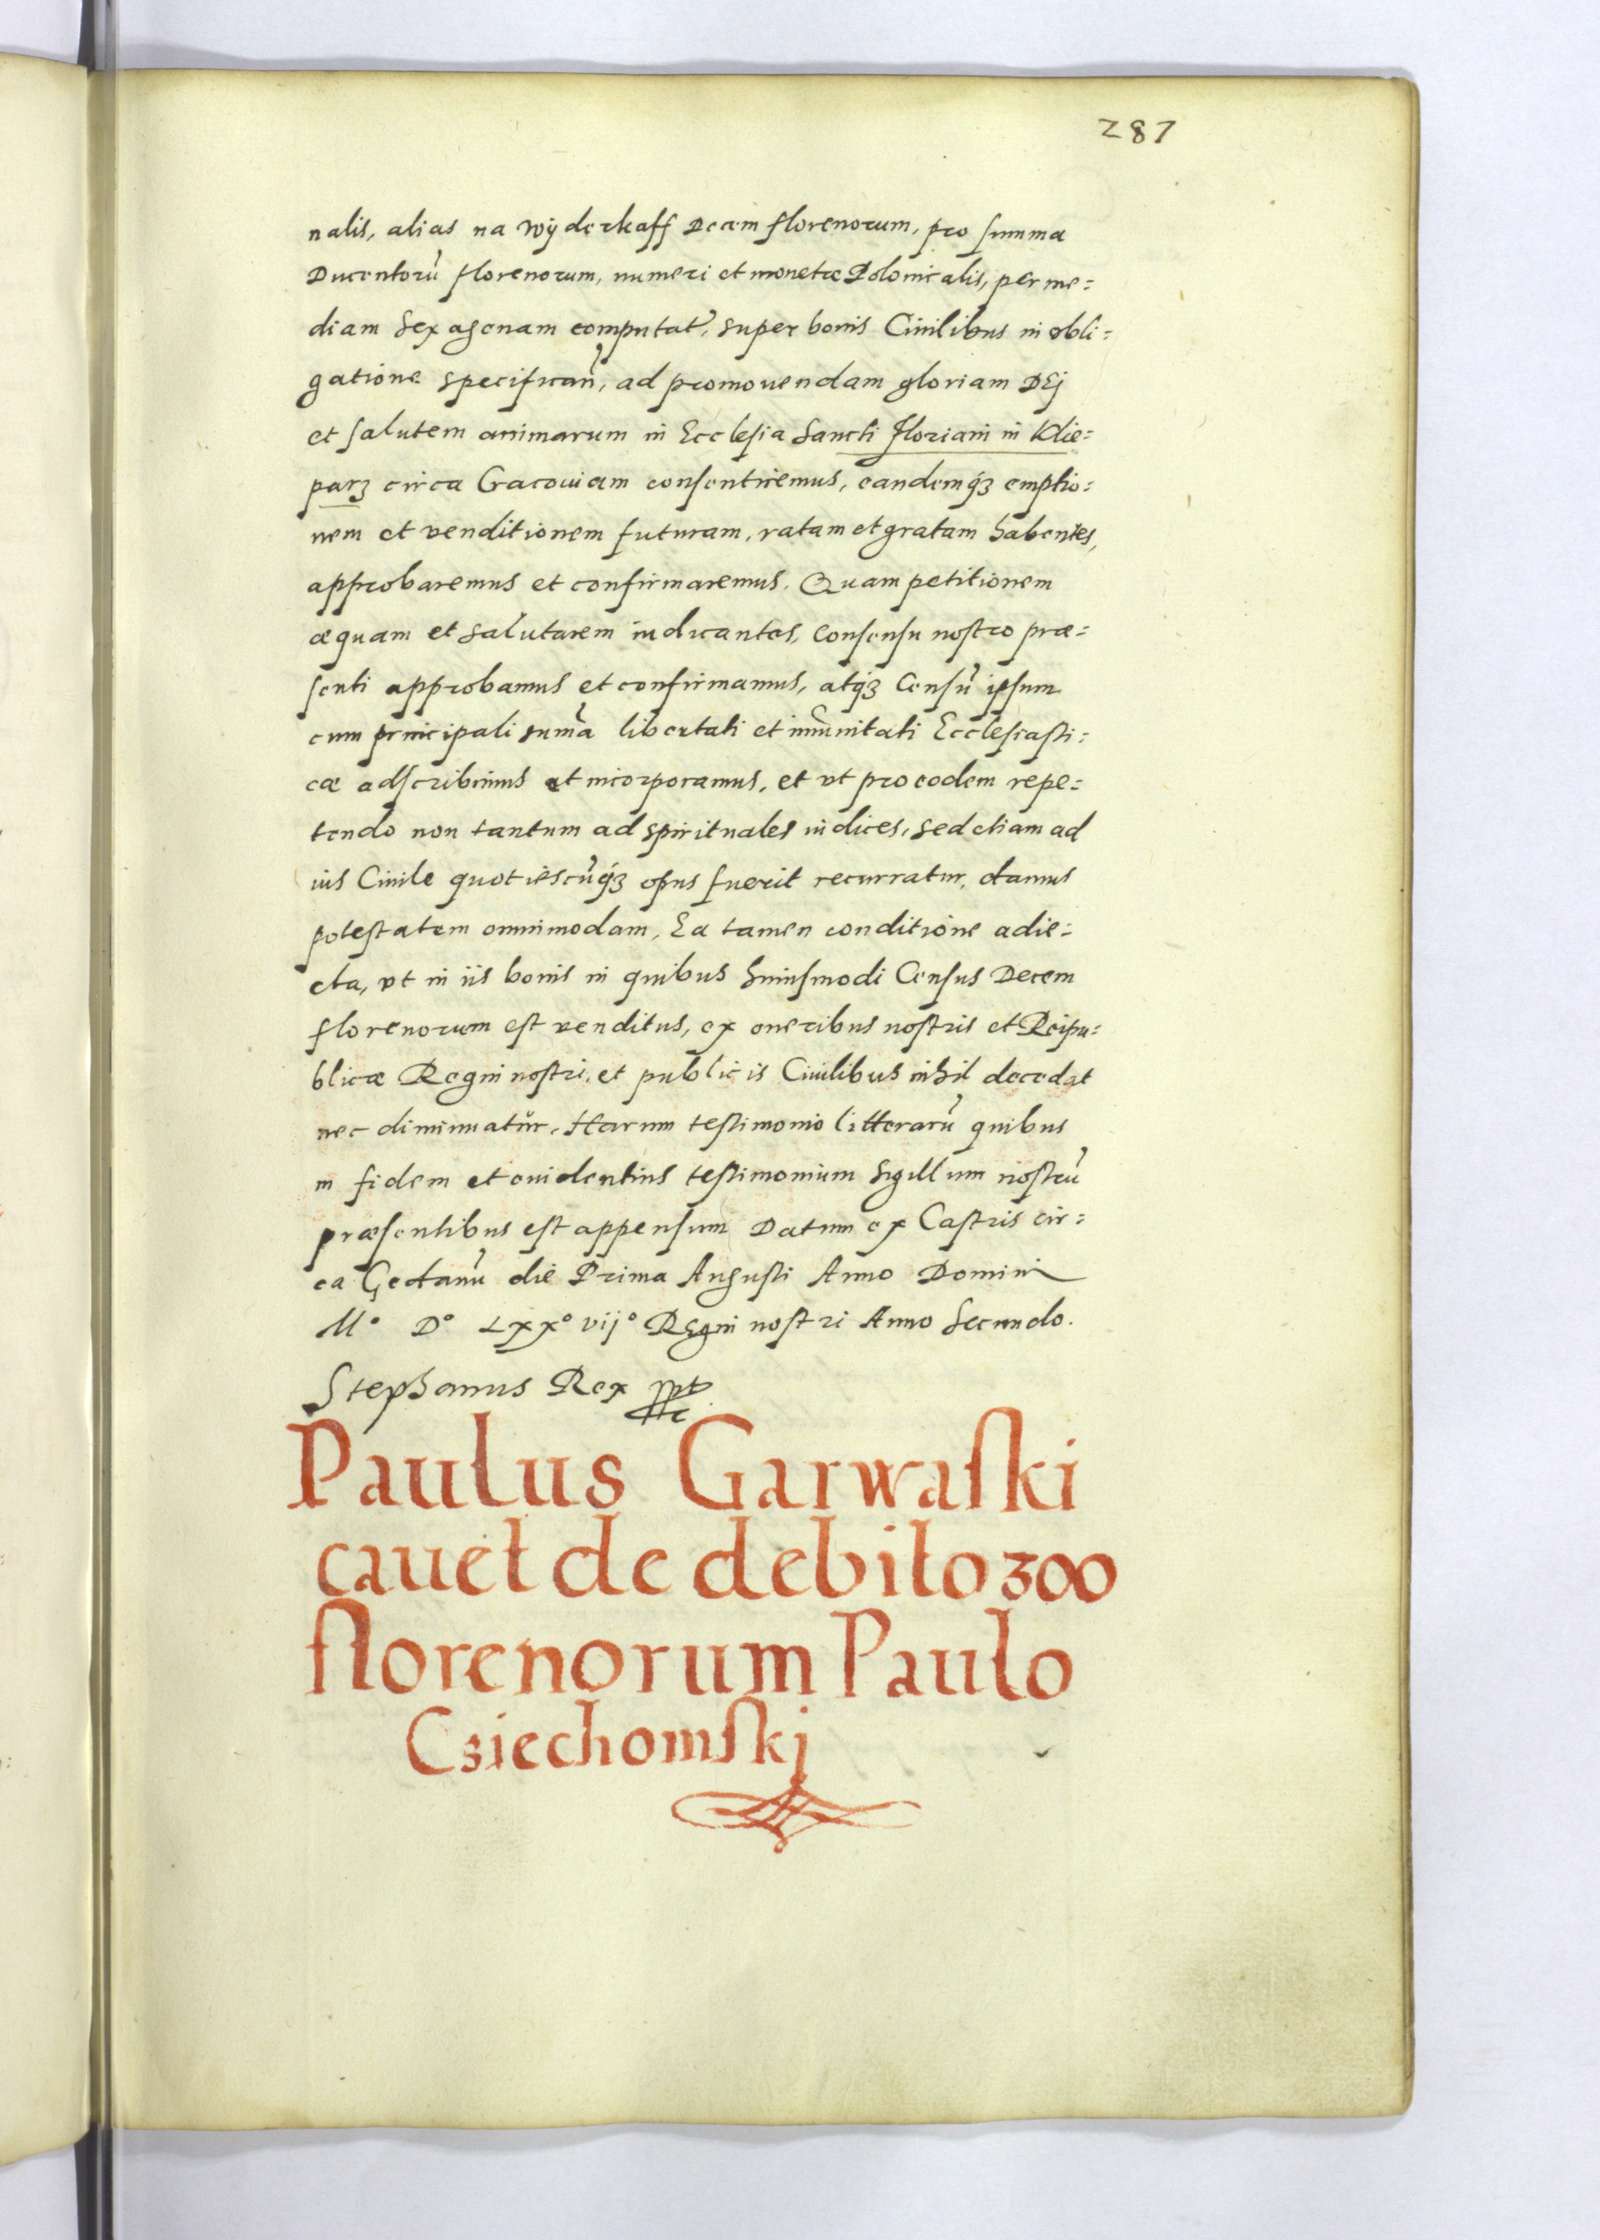 287
nalis, alias na wÿderkaff Decem florenorum, pro summa
Ducentorū florenorum, numeri et monetæ Polonicalis, per me=
diam sexagenam computat., super bonis Ciuilibus in obli=
gatione specifican̄, ad promouendam gloriam DEj
et salutem animarum in Ecclesia Sancti Floriani in Klie=
parz circa Cracouiam consentiremus, eandemq́ꝫ emptio=
nem et venditionem futuram, ratam et gratam habentes,
approbaremus et confirmaremus. Quam petitionem
æquam et salutarem iudicantes, Consensu nostro præ=
senti approbamus et confirmamus, atq́ꝫ Censū ipsum
cum principali sum̄a libertati et im̄unitati Ecclesiasti=
cæ adscribimus et incorporamus, et vt pro eodem repe=
tendo non tantum ad spirituales iudices, sed etiam ad
ius Ciuile quotiescūq́ꝫ opus fuerit recurratur, damus
potestatem omnimodam, Ea tamen conditione adie=
cta, vt in iis bonis in quibus huiusmodi Census Decem
florenorum est venditus, ex oneribus nostris et Reipu=
blicæ Regni nostri, et publicis Ciuilibus nihil decedat
nec diminuatŭr. Harum testimonio litterarū quibus
in fidem et euidentius testimonium Sigillum nostrū
præsentibus est appensum Datum ex Castris cir=
ca Gedanū die Prima Augusti Anno Domini
M° D° LXX° vij° Regni nostri Anno Secundo.
Stephanus Rex
Paulus Garwaski
cauet de debito 300
florenorum Paulo
Csiechomskj